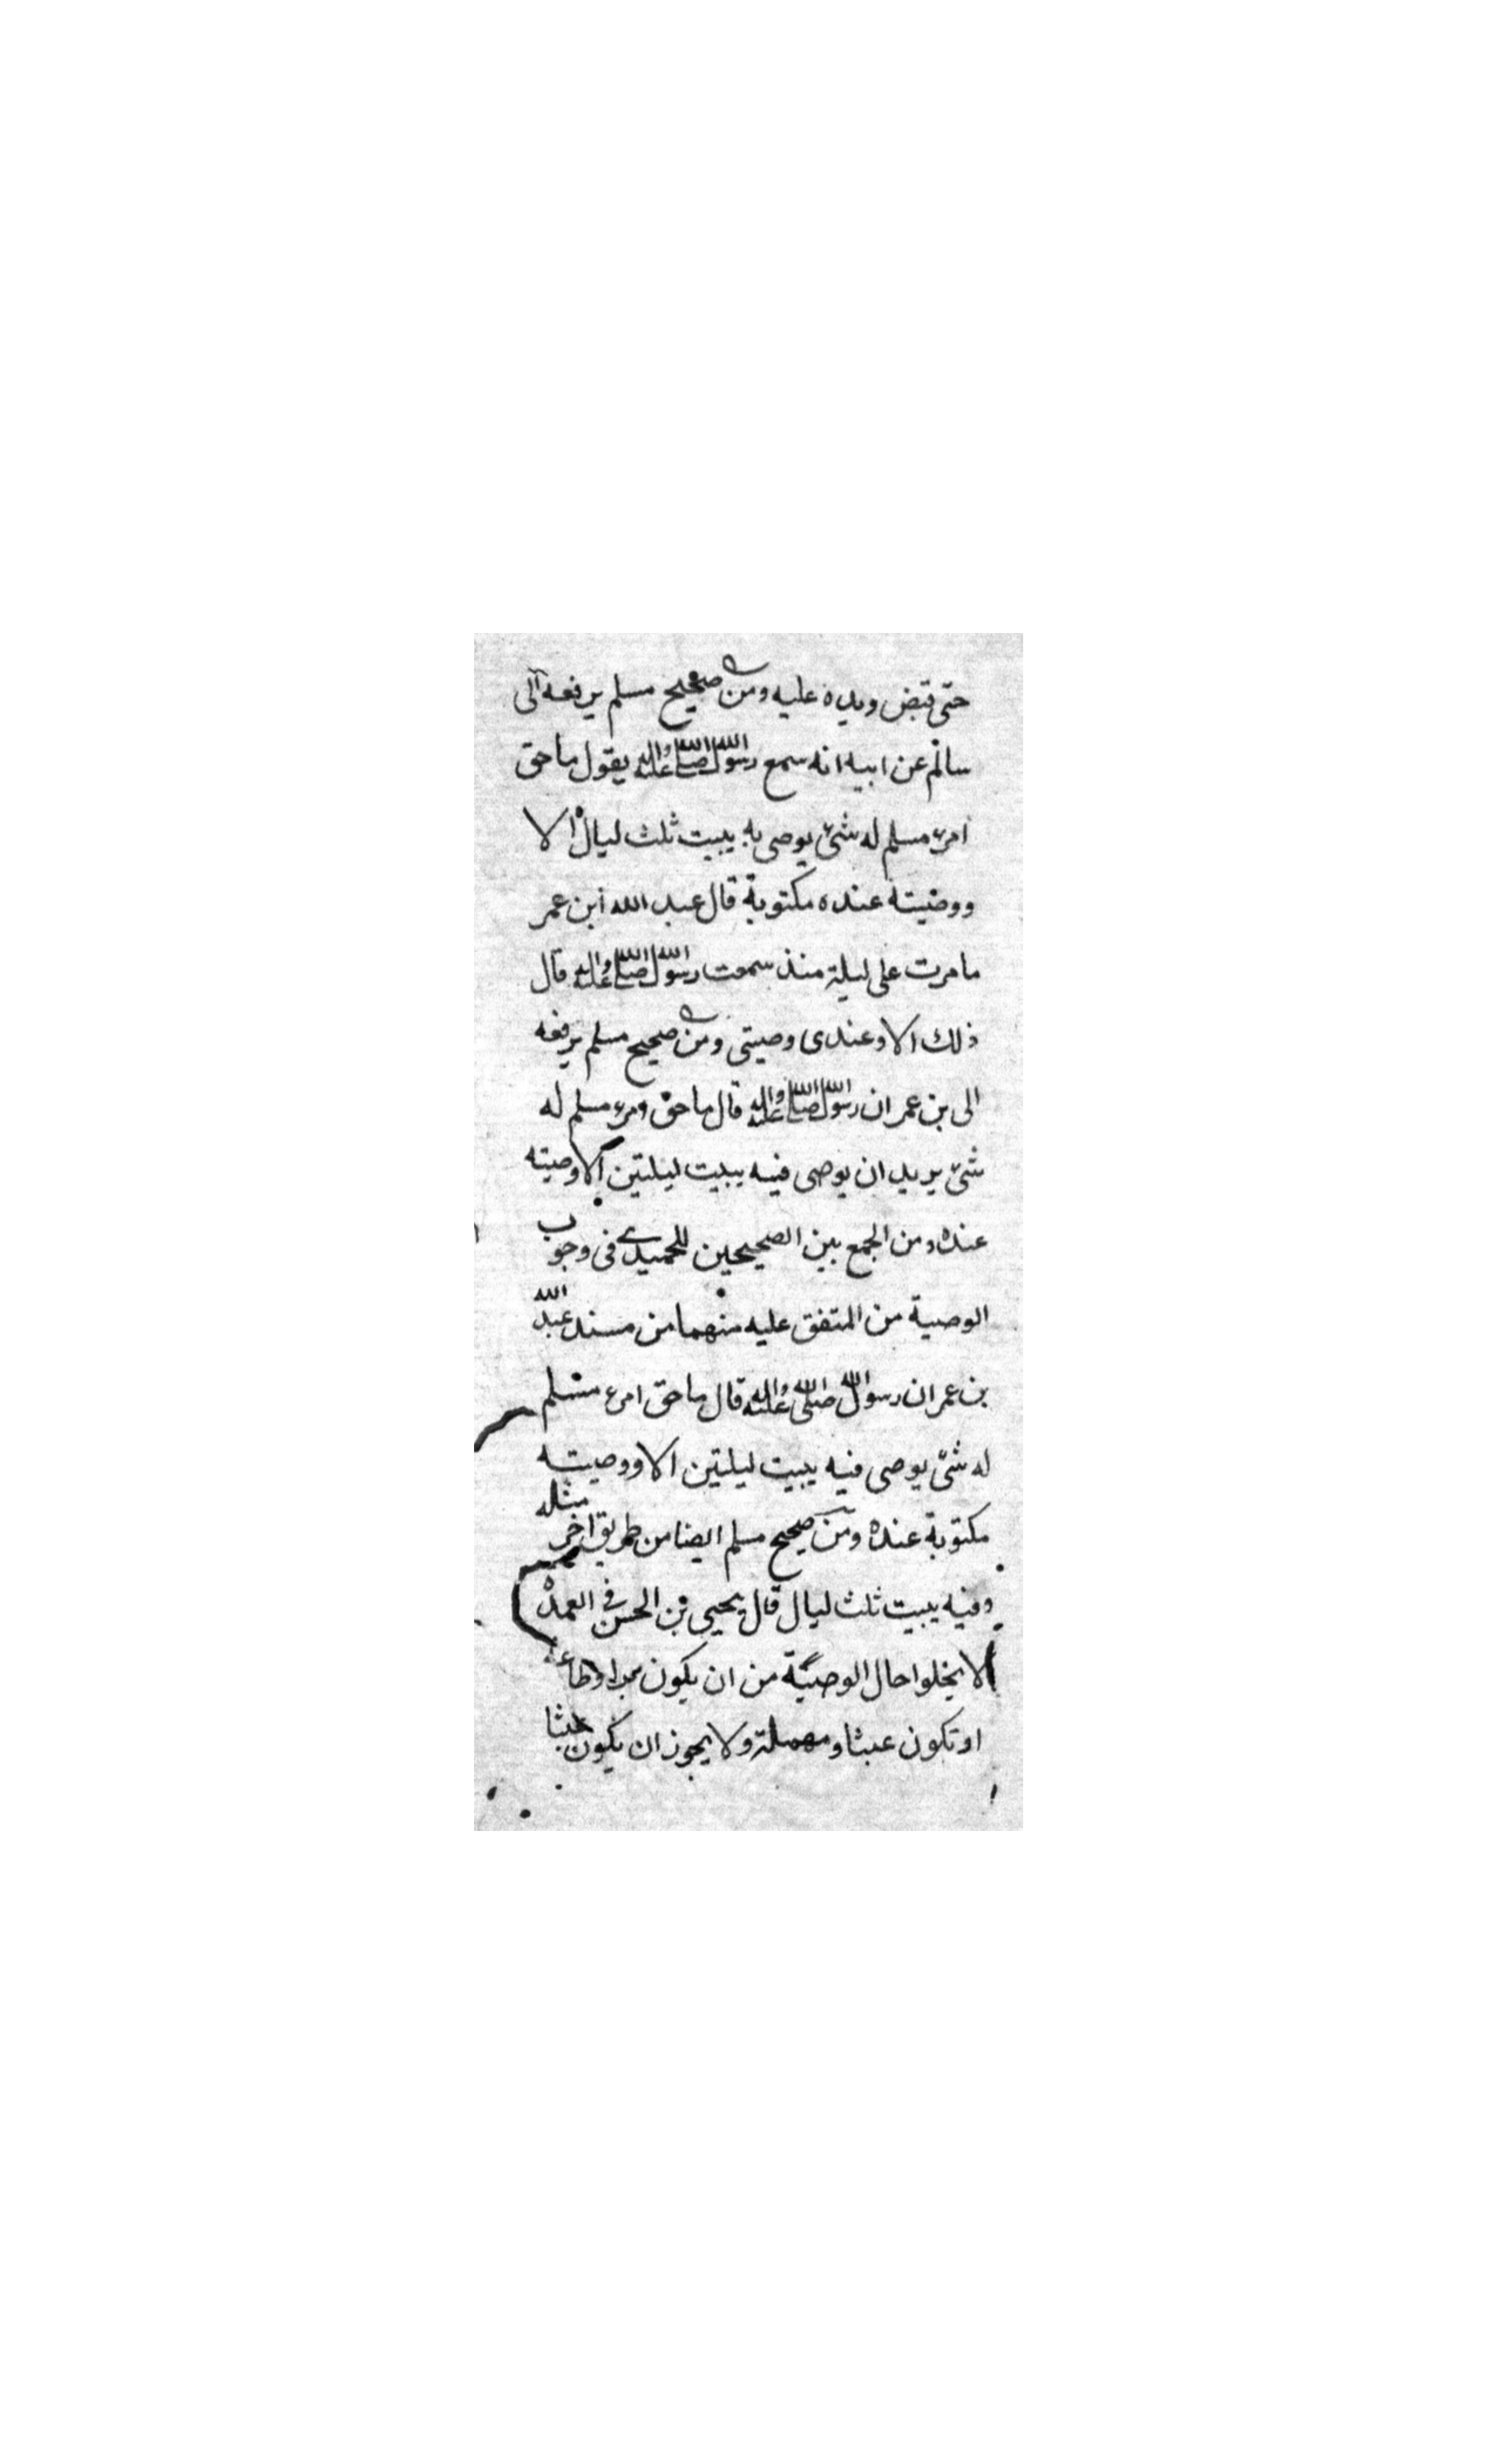 حتى قبض ويده عليه ومن صحيح مسلم يرفعه الى
سالم عن ابيه انه سمع رسول الله صلى الله عليه واله يقول ما حق
امرء مسلم له شئ يوصى به يبيت ثلث ليال الا
ووصيته عنده مكتوبة قال عبد الله ابن عمر
ما مرت على ليلة منذ سمعت رسول الله صلى الله عليه واله قال
ذلك الا وعندى وصيتى ومن صحيح مسلم يرفعه
الى بن عمر ان رسول الله صلى الله عليه واله قال ما حق ومرء مسلم له
شئ يريد ان يوصى فيه يبيت ليلتين الا وصيته
عنده ومن الجمع بين الصحيحين للحميدي فى وجوب
الوصية من المتفق عليه منهما من مسند عبد الله
بن عمر ان رسول الله صلى الله عليه واله قال ما حق امرء مسلم
له شئ يوصى فيه يبيت ليلتين الا ووصيته
مكتوبة عنده ومن صحيح مسلم ايضا من طريق اخر مثله
وفيه يبيت ثلث ليال قال يحيى بن الحسن في العمدة
لا يخلوا حال الوصية من ان يكون برا وطاعة
او تكون عبثا ومهملة ولا يجوز ان يكون عبثا